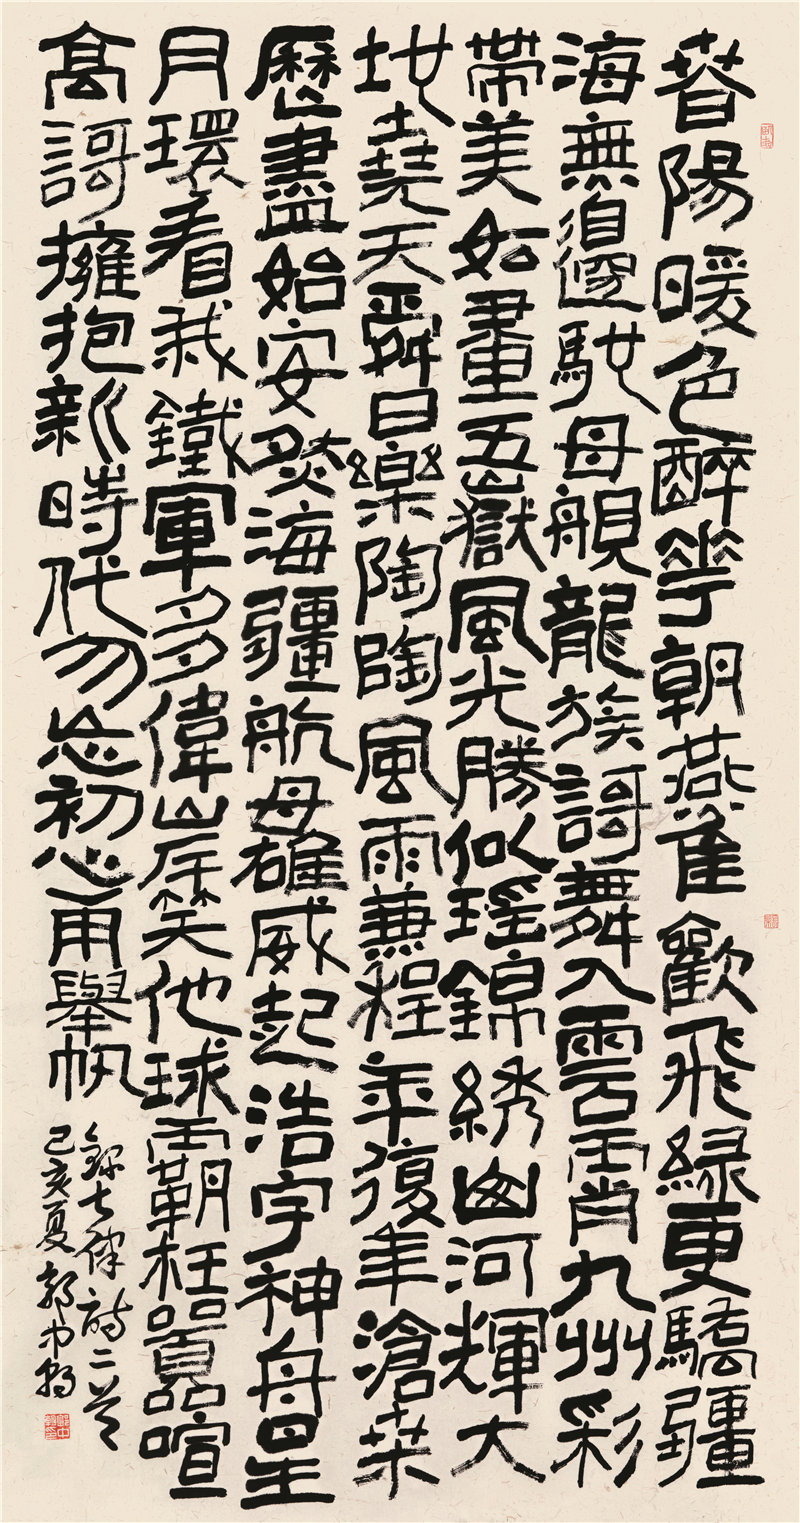 春陽暖色醉華朝燕雀歡飛緑更驕疆
海無邊馳母舰龍族謌舞入雲霄九州彩
帶美如畫五嶽風光勝似瑶錦綉山河輝大
地堯天舜日樂陶陶風雨兼程年復年滄桑
歷盡始安然海疆航母雄威起浩宇神舟星
月環看我鐵軍多偉岸笑他球霸枉囂喧
高謌擁抱新時代勿忘初心再舉帆
錄七律詩二首
己亥夏郭中